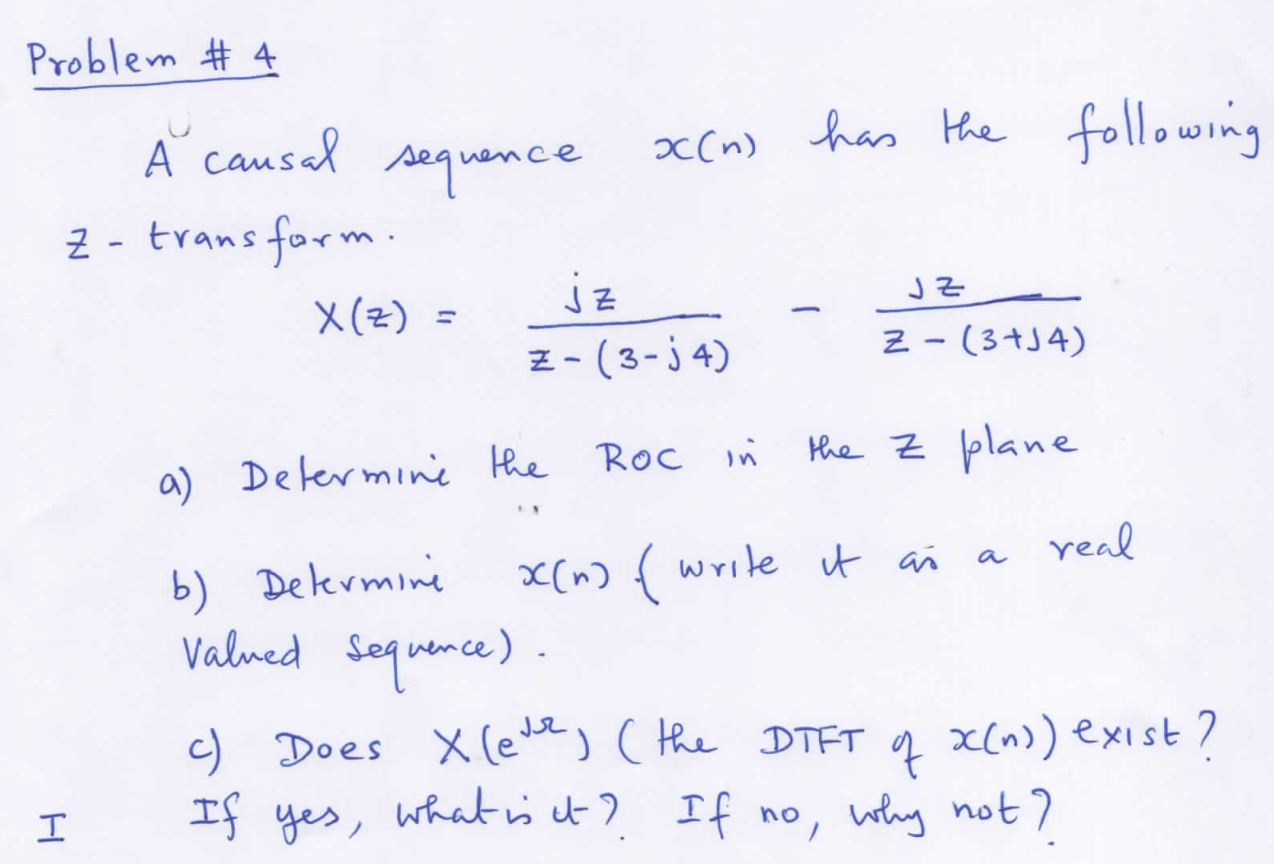 Problem # 4
A causal sequence x(n) has the following
z - transform.
X(z) = jz / (z - (3 - j4)) - jz / (z - (3 + j4))
a) Determine the ROC in the z plane
b) Determine x(n) (write it as a real
valued sequence).
c) Does X(e^jΩ) (the DTFT of x(n)) exist?
I If yes, what is it? If no, why not?